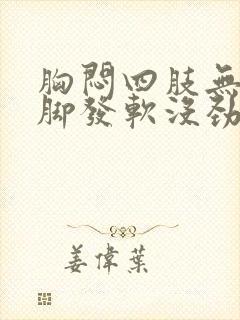 胸悶四肢無
腳發軟沒勁
姜偉葉